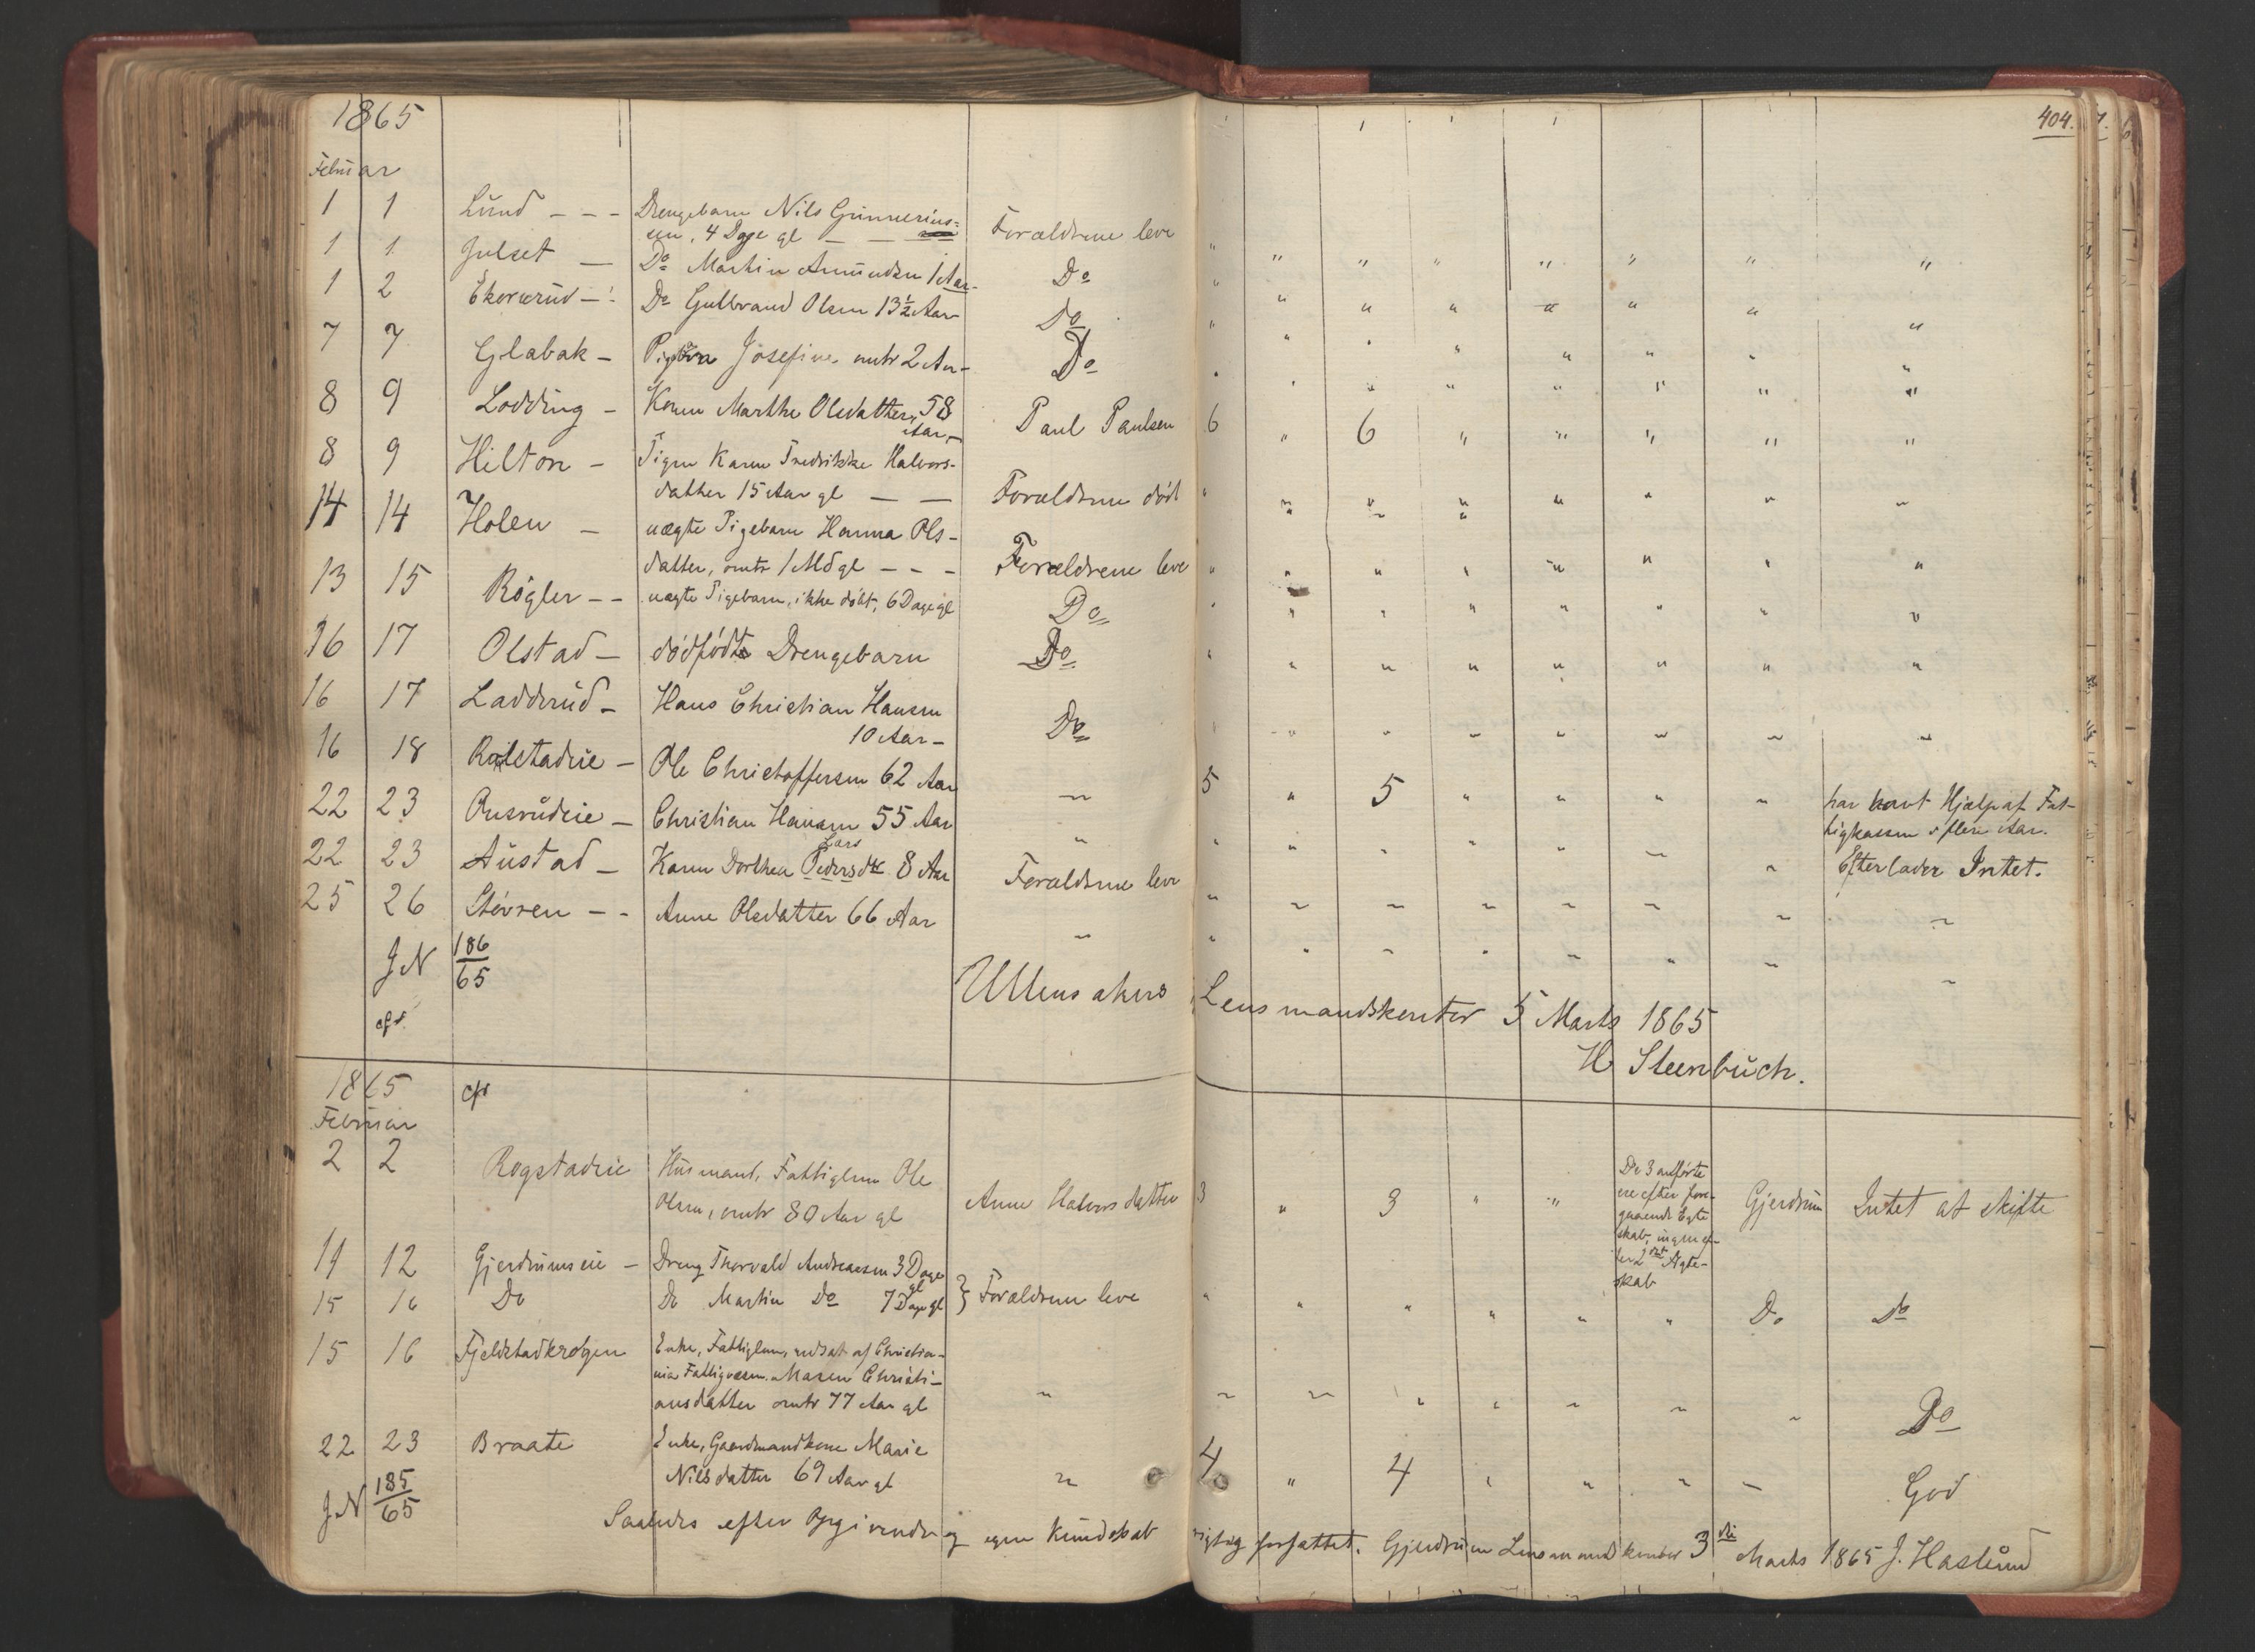 404.
1865
Februar
1 1 Lund - - - Drengebarn Nils Gunnerius=
sen, 4 Dage gl - - Forældrene leve " " " " " " " "
1 1 Julset - Do Martin Amundsen 1 Aar- Do " " " " " " " "
1 2 Ekornrud - Do Gulbrand Olsen 13½ Aar Do " " " " " " " "
7 7 Glabak - Josefine omtr 2 Aar- Do " " " " " " " "
8 9 Lodding - Konen Marthe Olsdatter, 58
Aar,- Paul Paulsen 6 " 6 " " " " "
8 9 Hilton - Pigen Karen Fredrikke Halvors-
datter 15 Aar gl - - Forældrene död " " " " " " " "
14 14 Holen - uægte Pigebarn Hanna Ols-
datter, omtr 1 Md gl - - - Forældrene leve " " " " " " " "
13 15 Rögler - - uægte Pigebarn, ikke döbt, 6 Dage gl Do " " " " " " " "
16 17 Olstad - dödfödt Drengebarn Do " " " " " " " "
16 17 Ladderud - Hans Christian Hansen
10 Aar - Do " " " " " " " "
16 18 - Ole Christoffersen 62 Aar " 5 " 5 " " " " har havt Hjælp af Fat-
tigkassen i flere Aar.
22 23 - Christian Hansen 55 Aar " " " " " " " " Efterlader Intet.
Lars
22 23 Austad - Karen Dorthea Pedersdtr 8 Aar Forældrene leve " " " " " " " "
25 26 Stövren - - Anne Olsdatter 66 Aar " " " " " " " " "
JN 186/65
Ullensakers Lensmandskontor 5 Marts 1865
cfr.
H Steenbuch.
1865 cfr
Februar
2 2 Rogstadeie Husmand, Fattiglem Ole
Olsen, omtr 80 Aar gl Anne Halvorsdatter 3 " 3 " " De 3 anförte
ere efter fore-
gaaende Egte
skab, ingen ef-
ter 2det Ægte-
skab Gjerdrum Intet at skifte
11 12 Gjerdrumseie - Dreng Thorvald Andreassen 3 Dage
gl
15 16 Do Do Martin Do 7 Dage gl } Forældrene leve " " " " " " Do Do
15 16 Fjeldstadkrogen Enke, Fattiglem, udsat af Christia-
nia Fattigvæsen. Maren Christi-
ansdatter omtr 77 Aar gl " " " " " " " " Do
22 23 Braate Enke, Gaardmandkone Marie
Nilsdatter 69 Aar gl " 4 " 4 " " " " God
JN 185/65
Saaledes efter Opgivende og egen Kundskab rigtig forfattet. Gjerdrum Lensmandskontor 3die Marts 1865 J. Haslund